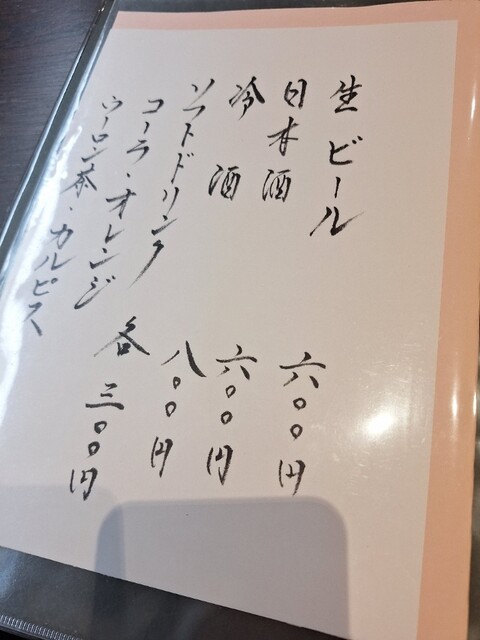 生ビール 六〇〇円
日本酒 六〇〇円
冷酒 八〇〇円
ソフトドリンク 各三〇〇円
コーラ・オレンジ
ウーロン茶・カルピス